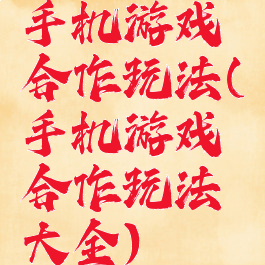 手机游戏
合作玩法(
手机游戏
合作玩法
大全)